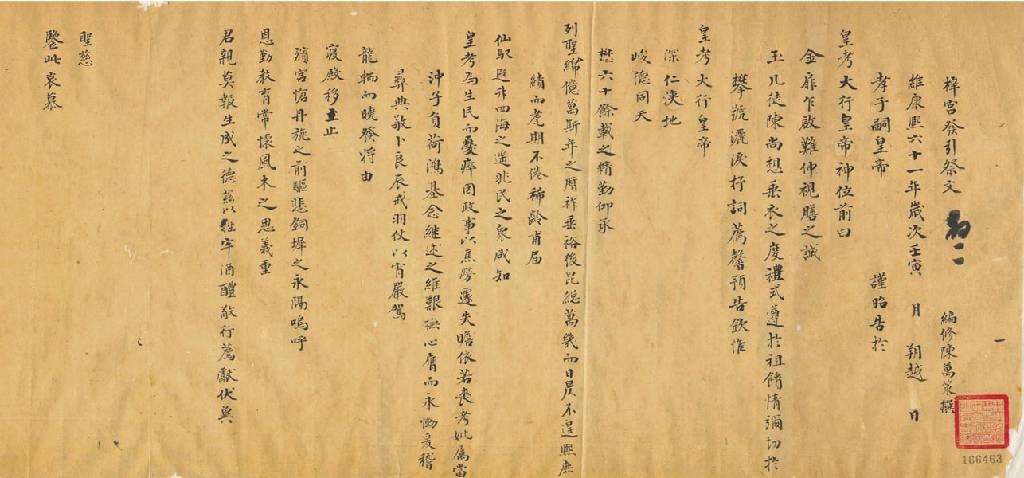 梓宮發引祭文 初二 編修陳萬策撰
維康熙六十一年歲次壬寅 月 朔越 日
孝子嗣皇帝 謹昭告於
皇考大行皇帝神位前曰
金扉乍啟難伸視膳之誠
玉几徒陳尚想垂衣之度禮式遵於祖餞情彌切於
攀號灑淚抒詞薦馨預告欽惟
皇考大行皇帝
深仁浹地
峻德同天
懋六十餘載之精勤仰承
列聖綿億萬斯年之曆祚垂裕後昆總萬幾而日昃不遑熙庶
績而耄期不倦稀齡甫屆
仙馭遐升四海之遙兆民之衆咸知
皇考為生民而憂瘁因政事以焦勞遽失瞻依若喪考妣屬當
沖子負荷鴻基念繼述之維艱無心膺而永慟爰稽
彝典敬卜良辰戒羽仗以宵嚴駕
龍輴而曉發將由
寢殿移至止
殯宮愴丹旐之前驅悲銅墀之永隔嗚呼
恩勤教育常懷夙夜之思義重
君親莫報生成之德茲以牲牢酒醴敬行薦獻伏冀
聖慈
鑒此哀慕
166463